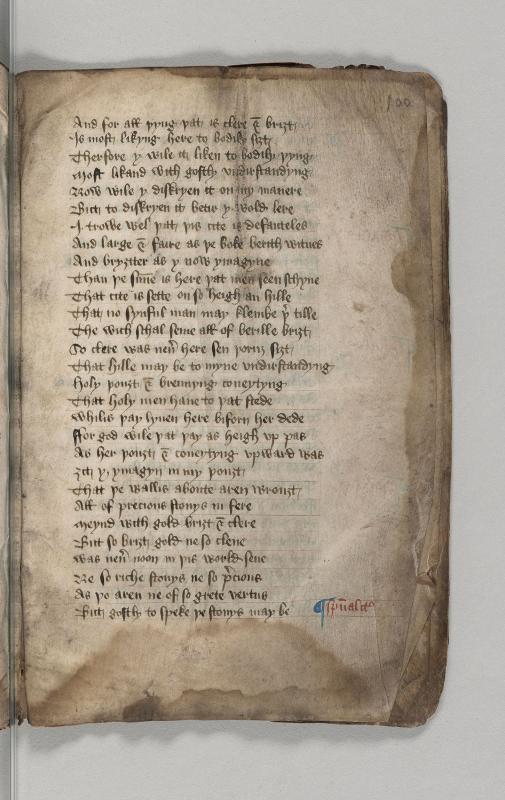 100
And for all þyng þat is clere & briȝt
Is most likyng here to bodily siȝt
Therfore y wile it liken to bodily þyng
Most likand with gostly vndirstandyng
Now wile y diskryen it on my manere
Bitt to diskryen it betir y wold lere
I trowe wel þatt þis cite is defauteles
And large & faire as þe boke berith witnes
And bryȝtter as y now ymagyne
Than þe sūne is here þat men seen schyne
That cite is sette on so heigh an hille
That no synful man may klembe þ̓ tille
The wich schal seme all of berille briȝt
So clere was neū here sen þorȝ siȝt
That hille may be to myne vndirstandyng
Holy þouȝt & brennyng coueytyng
That holy men haue to þat stede
Whilis þay lyuen here biforn her dede
Ffor god wile þat þay as heigh vp pas
As her þouȝt & coueytyng vpward was
Ȝitt y ymagyn in my þouȝt
That þe wallis aboute aren wrouȝt
All of precious stonys in fere
Meynd with gold briȝt & clere
Bitt so briȝt gold ne so clene
Was neū noon in þis world sene
Ne so riche stonys ne so p̓cious
As þo aren ne of so grete vertus
Bitt gostly to speke þe stonys may be